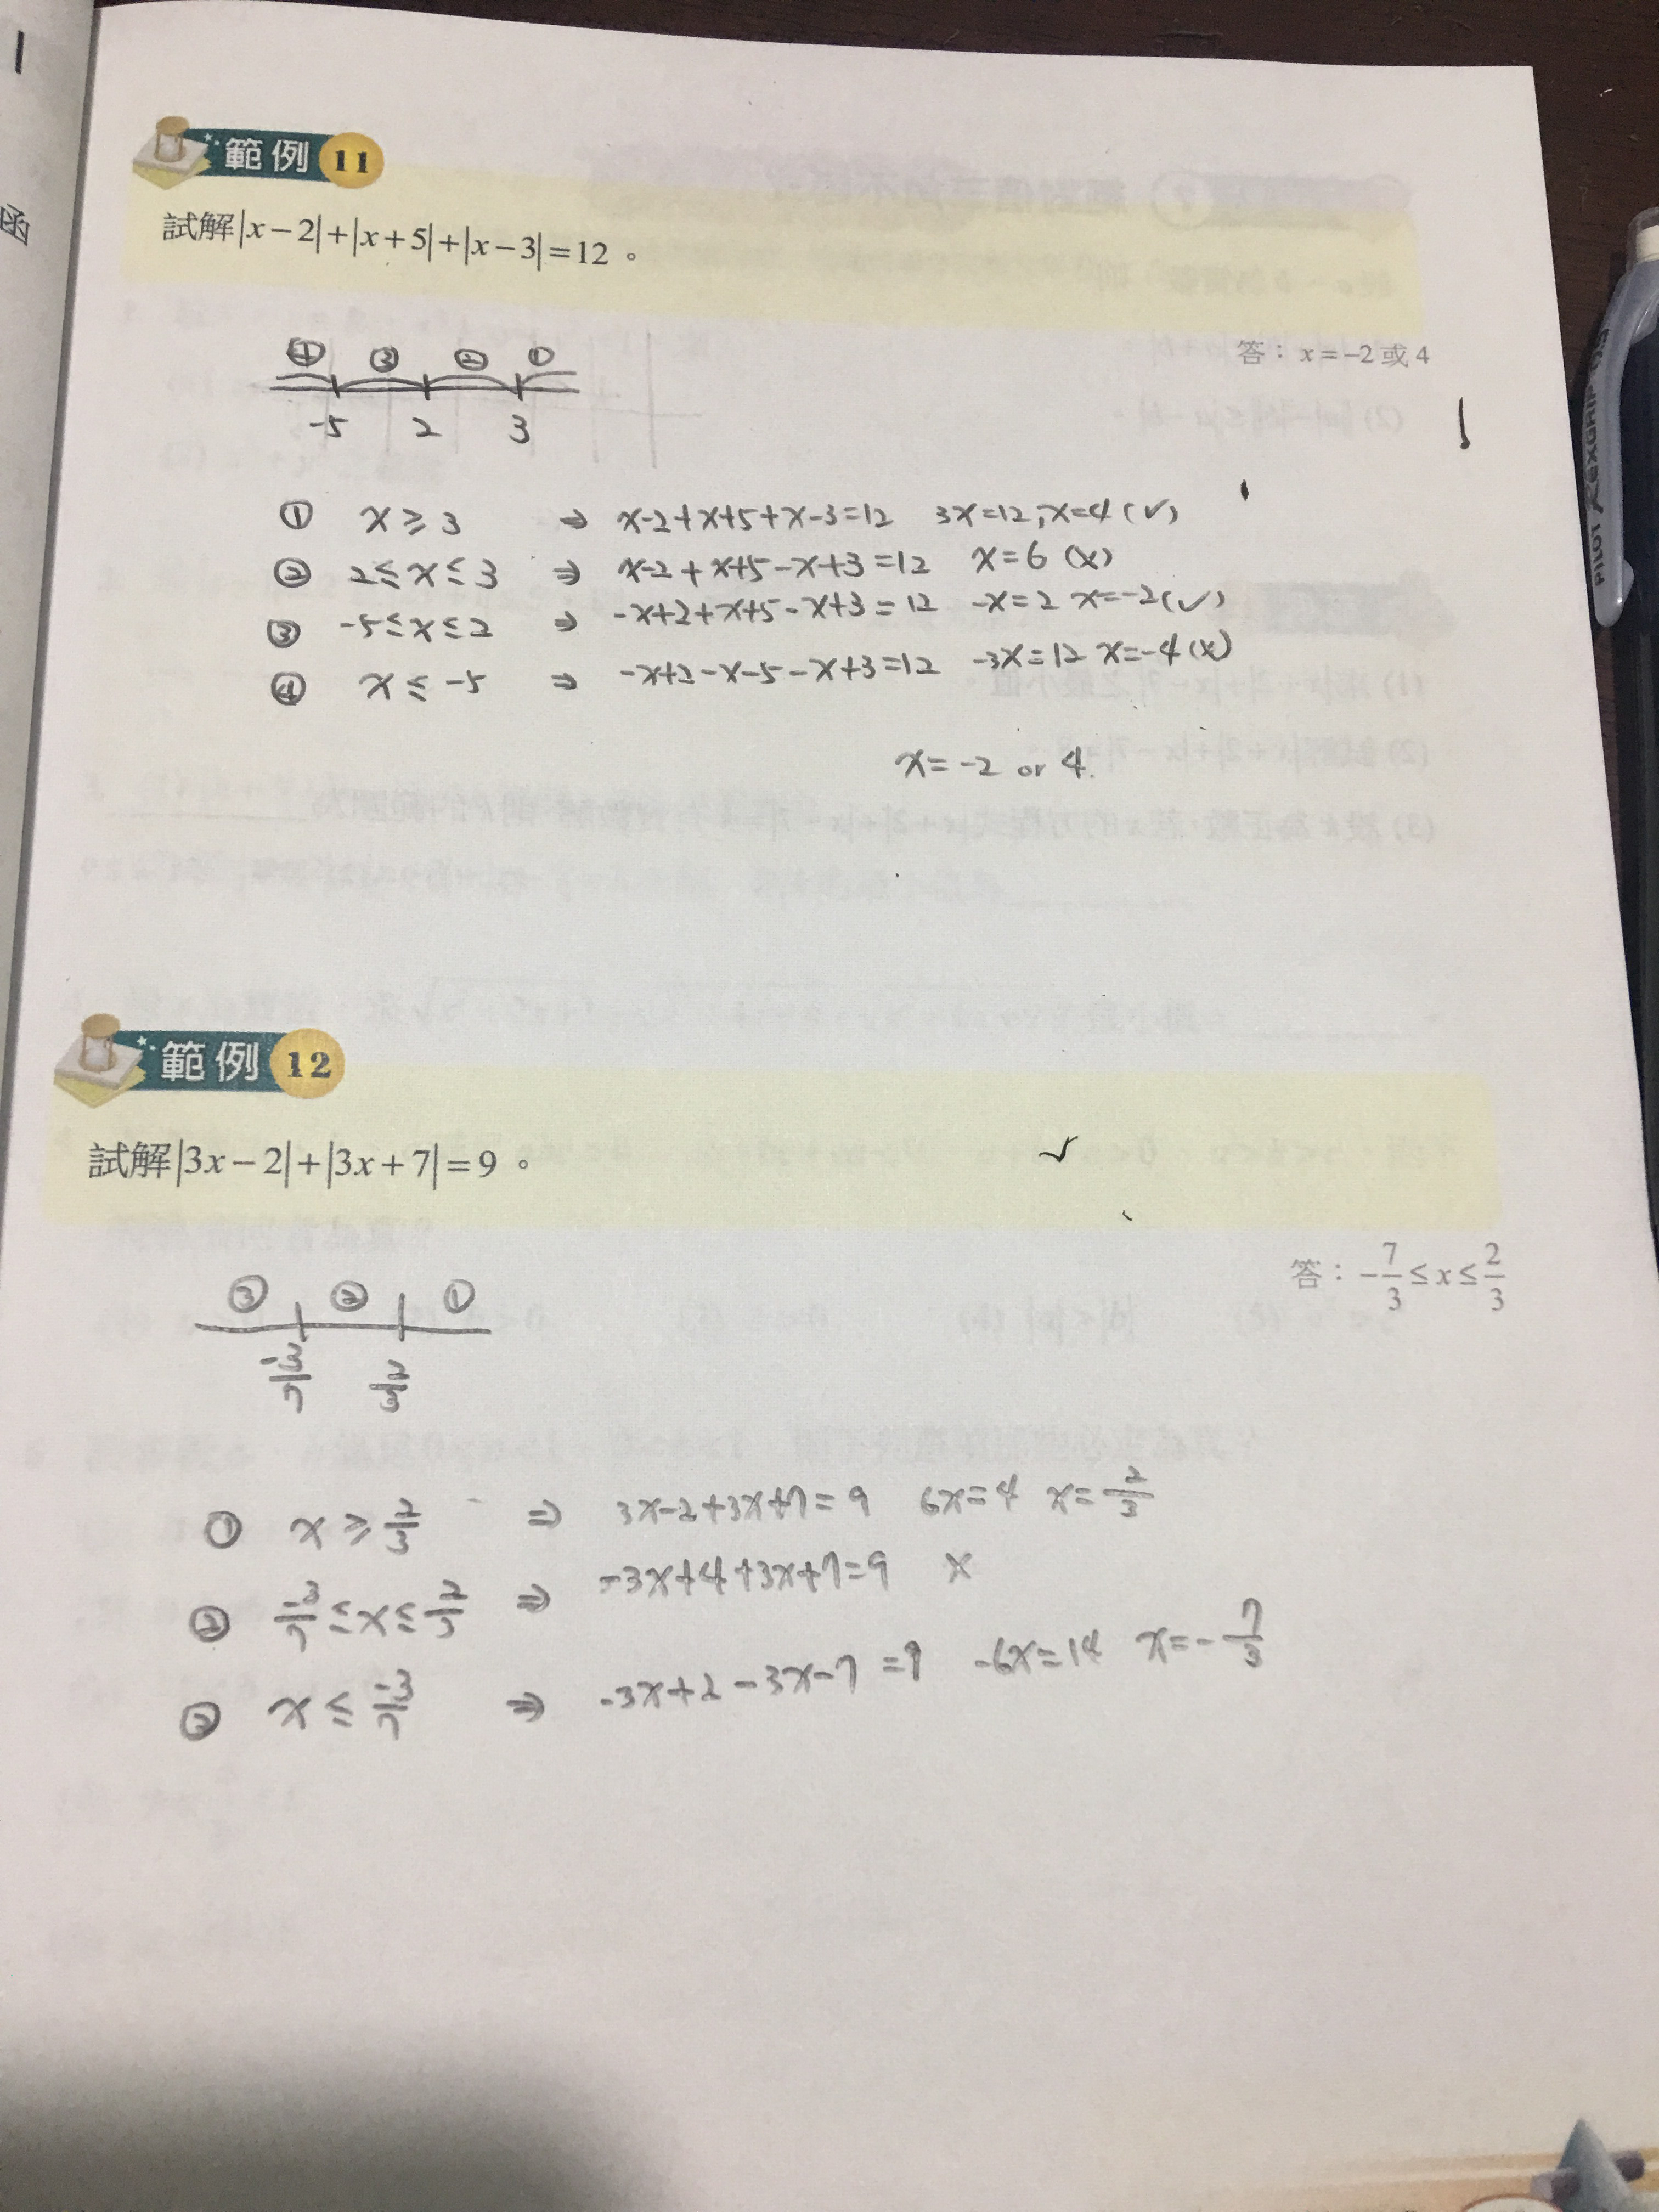 函
範例 11
試解|x−2|+|x+5|+|x−3|=12。
答：x=−2或4
④ ③ ② ①
-5 2 3
① x≥3 ⇒ x-2+x+5+x-3=12 3x=12, x=4 (✓)
② 2≤x≤3 ⇒ x-2+x+5-x+3=12 x=6 (x)
③ -5≤x≤2 ⇒ -x+2+x+5-x+3=12 -x=2 x=-2(✓)
④ x≤-5 ⇒ -x+2-x-5-x+3=12 -3x=12 x=-4(x)
x=-2 or 4.
範例 12
試解|3x−2|+|3x+7|=9。
答：−7/3≤x≤2/3
③ ② ①
-3/7 2/3
① x≥2/3 ⇒ 3x-2+3x+7=9 6x=4 x=2/3
② -3/7≤x≤2/3 ⇒ -3x+4+3x+7=9 x
③ x≤-3/7 ⇒ -3x+2-3x-7=9 -6x=14 x=-7/3
PILOT